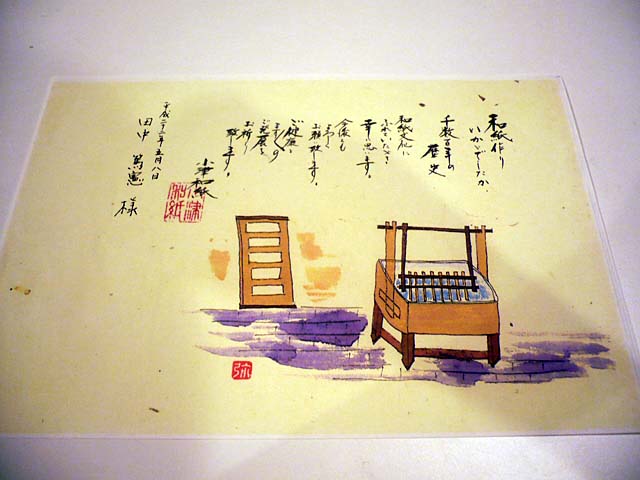 和紙作り
いかがでしたか、
千数百年の
歴史
和紙文化に
ふれていただき
幸に思います。
今後とも
よろしく
お願い致します。
ご健康と
ますますの
ご発展を
お祈り
致します。
小津和紙
小津和紙
平成二十二年五月八日
田中 篤憲 様
弥